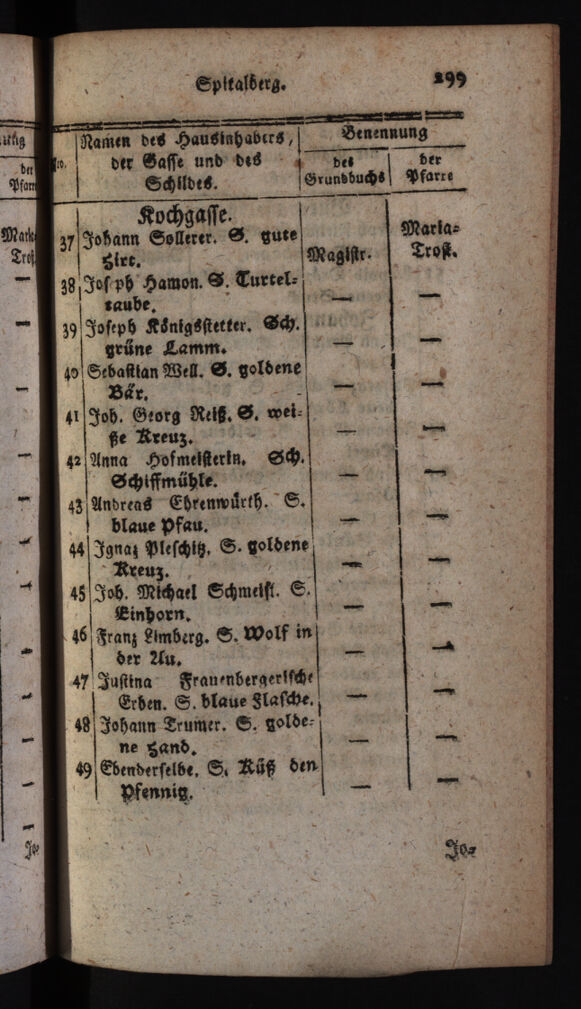 Spitalberg. 299
Nro. Namen des Hausinhabers, der Gasse und des Schildes. Benennung
des Grundbuchs der Pfarre
Kochgasse.
37 Johann Sollerer. S. gute
Hirt. Magistr. Maria-Trost.
38 Joseph Hamon. S. Turtel-
taube. — —
39 Joseph Königsstetter. Sch.
grüne Lamm. — —
40 Sebastian Well. S. goldene
Bär. — —
41 Joh. Georg Reiß. S. wei-
ße Kreuz. — —
42 Anna Hofmeisterin. Sch.
Schiffmühle. — —
43 Andreas Ehrenwürth. S.
blaue Pfau. — —
44 Ignaz Pleschitz. S. goldene
Kreuz. — —
45 Joh. Michael Schmeist. S.
Einhorn. — —
46 Franz Limberg. S. Wolf in
der Au. — —
47 Justina Frauenbergerische
Erben. S. blaue Flasche. — —
48 Johann Trumer. S. golde-
ne Hand. — —
49 Ebenderselbe. S. Küß den
Pfennig. — —
Jo-